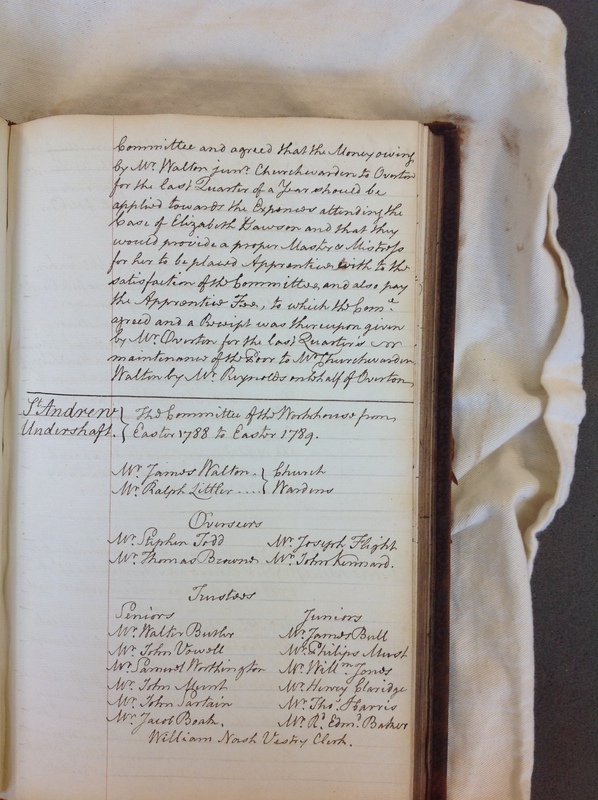 Committee and agreed that the Money owing
by Mr. Walton junr. Churchwarden to Overton
for the last Quarter of a Year should be
applied towards the Expences attending the
Case of Elizabeth Dawson and that they
would provide a proper Master & Mistress
for her to be placed Apprentice with to the
satisfaction of the Committee, and also pay
the Apprentice Fee, to which the Come.
agreed and a Receipt was thereupon given
by Mr. Overton for the last Quarter's
maintenance of the Poor to Mr. Churchwarden
Walton by Mr. Reynolds on behalf of Overton
St. Andrew Undershaft.
The Committee of the Workhouse from
Easter 1788 to Easter 1789.
Mr. James Walton Church
Mr. Ralph Littler .... Wardens
Overseers
Mr. Stephen Todd Mr. Joseph Flight
Mr. Thomas Browne Mr. John Kennard.
Trustees
Seniors Juniors
Mr. Walter Butler Mr. James Bull
Mr. John Vowell Mr. Philips
Mr. Samuel Worthington Mr. Willm. Jones
Mr. John Mr. Henry Claridge
Mr. John Sartain Mr. Thos. Harris
Mr. Jacob Boak. Mr. Rd. Edmd. Baker
William Nash Vestry Clerk.